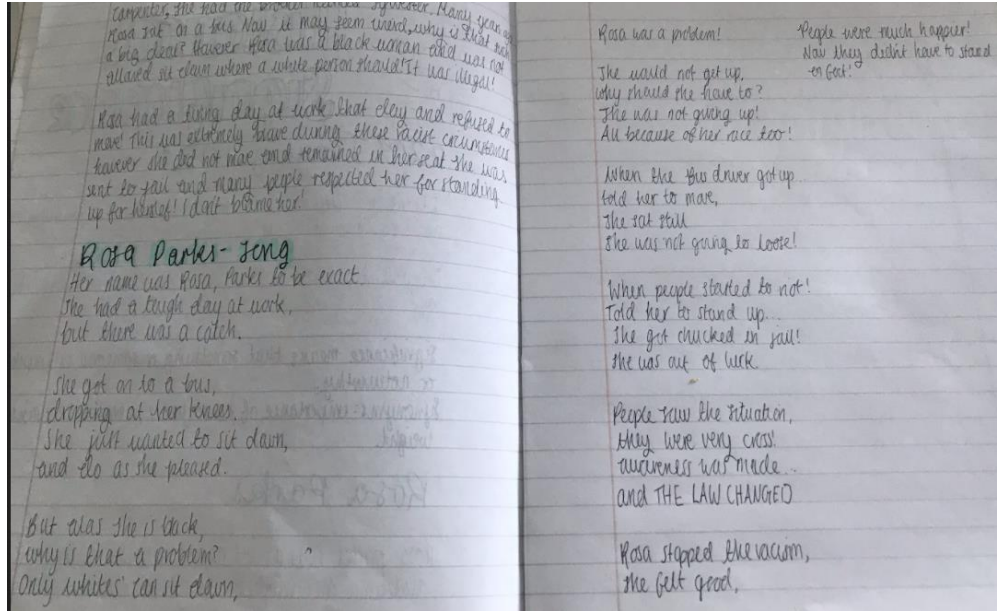 carpenter, she had one brother named Sylvester. Many years ago
Rosa sat on a bus. Now it may seem weird, why is that such
a big deal? However Rosa was a black woman and was not
allowed sit down where a white person should! It was illegal!
Rosa had a tiring day at work that day and refused to
move! This was extremely brave during these racist circumstances
however she did not move and remained in her seat she was
sent to jail and many people respected her for standing
up for herself! I don't blame her!
Rosa Parks- song
Her name was Rosa, Parks to be exact.
She had a tough day at work,
but there was a catch.
She got on to a bus,
dropping at her knees,
She just wanted to sit down,
and do as she pleased.
But alas she is black,
why is that a problem?
Only whites can sit down,
Rosa was a problem!
She would not get up,
why should she have to?
She was not giving up!
All because of her race too!
When the bus driver got up
told her to move,
She sat still
She was not going to loose!
When people started to not!
Told her to stand up...
She got chucked in jail!
She was out of luck
People saw the situation,
they were very cross!
awareness was made...
and THE LAW CHANGED
Rosa stopped the racism,
she felt good,
People were much happier!
Now they didn't have to stand